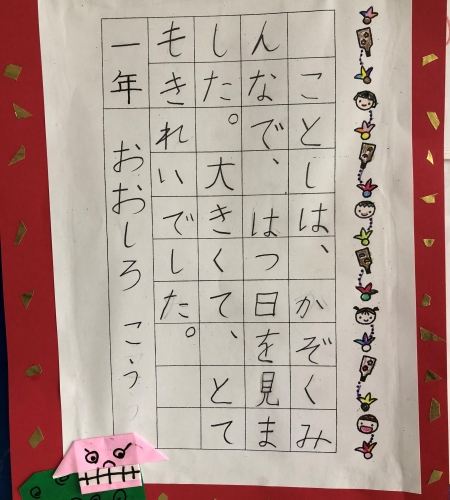 ことしは、かぞくみ
んなで、はつ日を見ま
した。大きくて、とて
もきれいでした。
一年 おおしろ こう